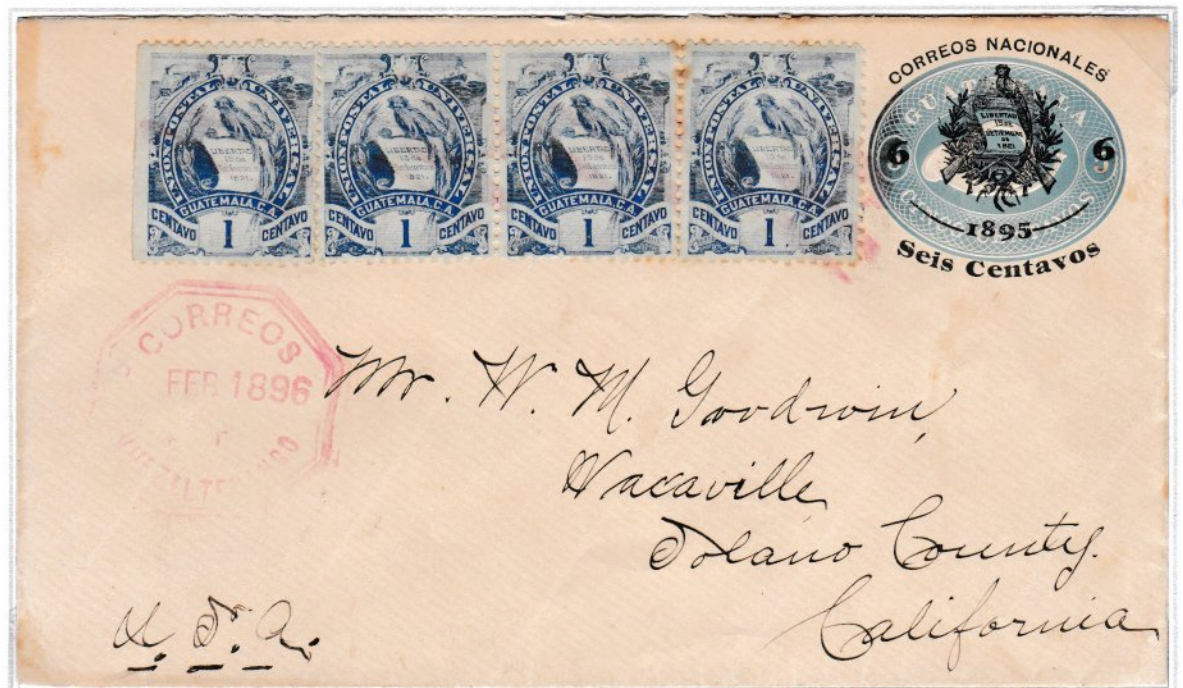 UNION POSTAL UNIVERSAL
LIBERTAD
15 de
Setiembre
1821.
GUATEMALA. C.A.
CENTAVO 1 CENTAVO
UNION POSTAL UNIVERSAL
LIBERTAD
15 de
Setiembre
1821.
GUATEMALA. C.A.
CENTAVO 1 CENTAVO
UNION POSTAL UNIVERSAL
LIBERTAD
15 de
Setiembre
1821.
GUATEMALA. C.A.
CENTAVO 1 CENTAVO
UNION POSTAL UNIVERSAL
LIBERTAD
15 de
Setiembre
1821.
GUATEMALA. C.A.
CENTAVO 1 CENTAVO
CORREOS NACIONALES
GUATEMALA
LIBERTAD
15 DE
SETIEMBRE
1821
6 6
1895
Seis Centavos
CORREOS
FEB 1896
Mr. W. M. Goodwin,
Vacaville
Solano County.
California
U. S. A.